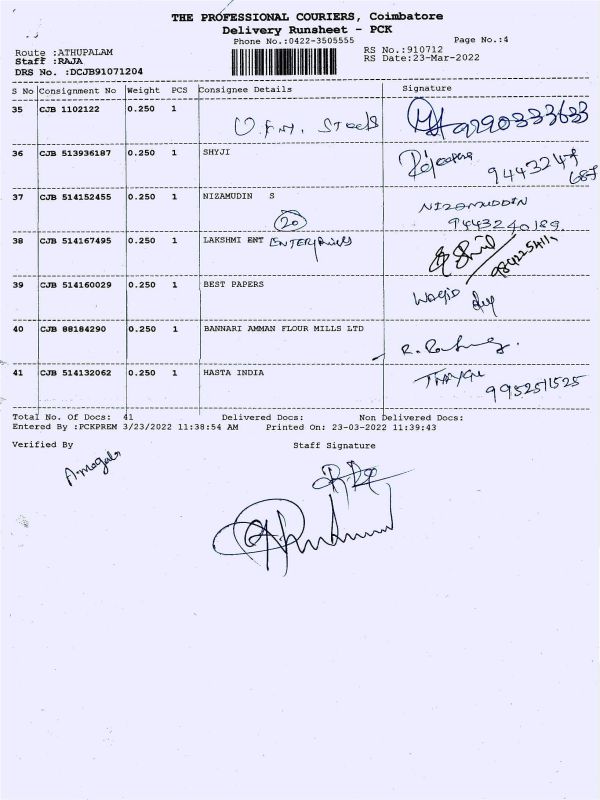 THE PROFESSIONAL COURIERS, Coimbatore
Delivery Runsheet - PCK
Phone No.:0422-3505555 Page No.:4
Route :ATHUPALAM RS No.:910712
Staff :RAJA RS Date:23-Mar-2022
DRS No. :DCJB91071204
S No Consignment No Weight PCS Consignee Details Signature
35 CJB 1102122 0.250 1 Steels
36 CJB 513936187 0.250 1 SHYJI
37 CJB 514152455 0.250 1 NIZAMUDIN S NIZAMUDDIN
20 9443240189
38 CJB 514167495 0.250 1 LAKSHMI ENT ENTERPRISES
39 CJB 514160029 0.250 1 BEST PAPERS
40 CJB 88184290 0.250 1 BANNARI AMMAN FLOUR MILLS LTD
41 CJB 514132062 0.250 1 HASTA INDIA
9952511525
Total No. Of Docs: 41 Delivered Docs: Non Delivered Docs:
Entered By :PCKPREM 3/23/2022 11:38:54 AM Printed On: 23-03-2022 11:39:43
Verified By Staff Signature